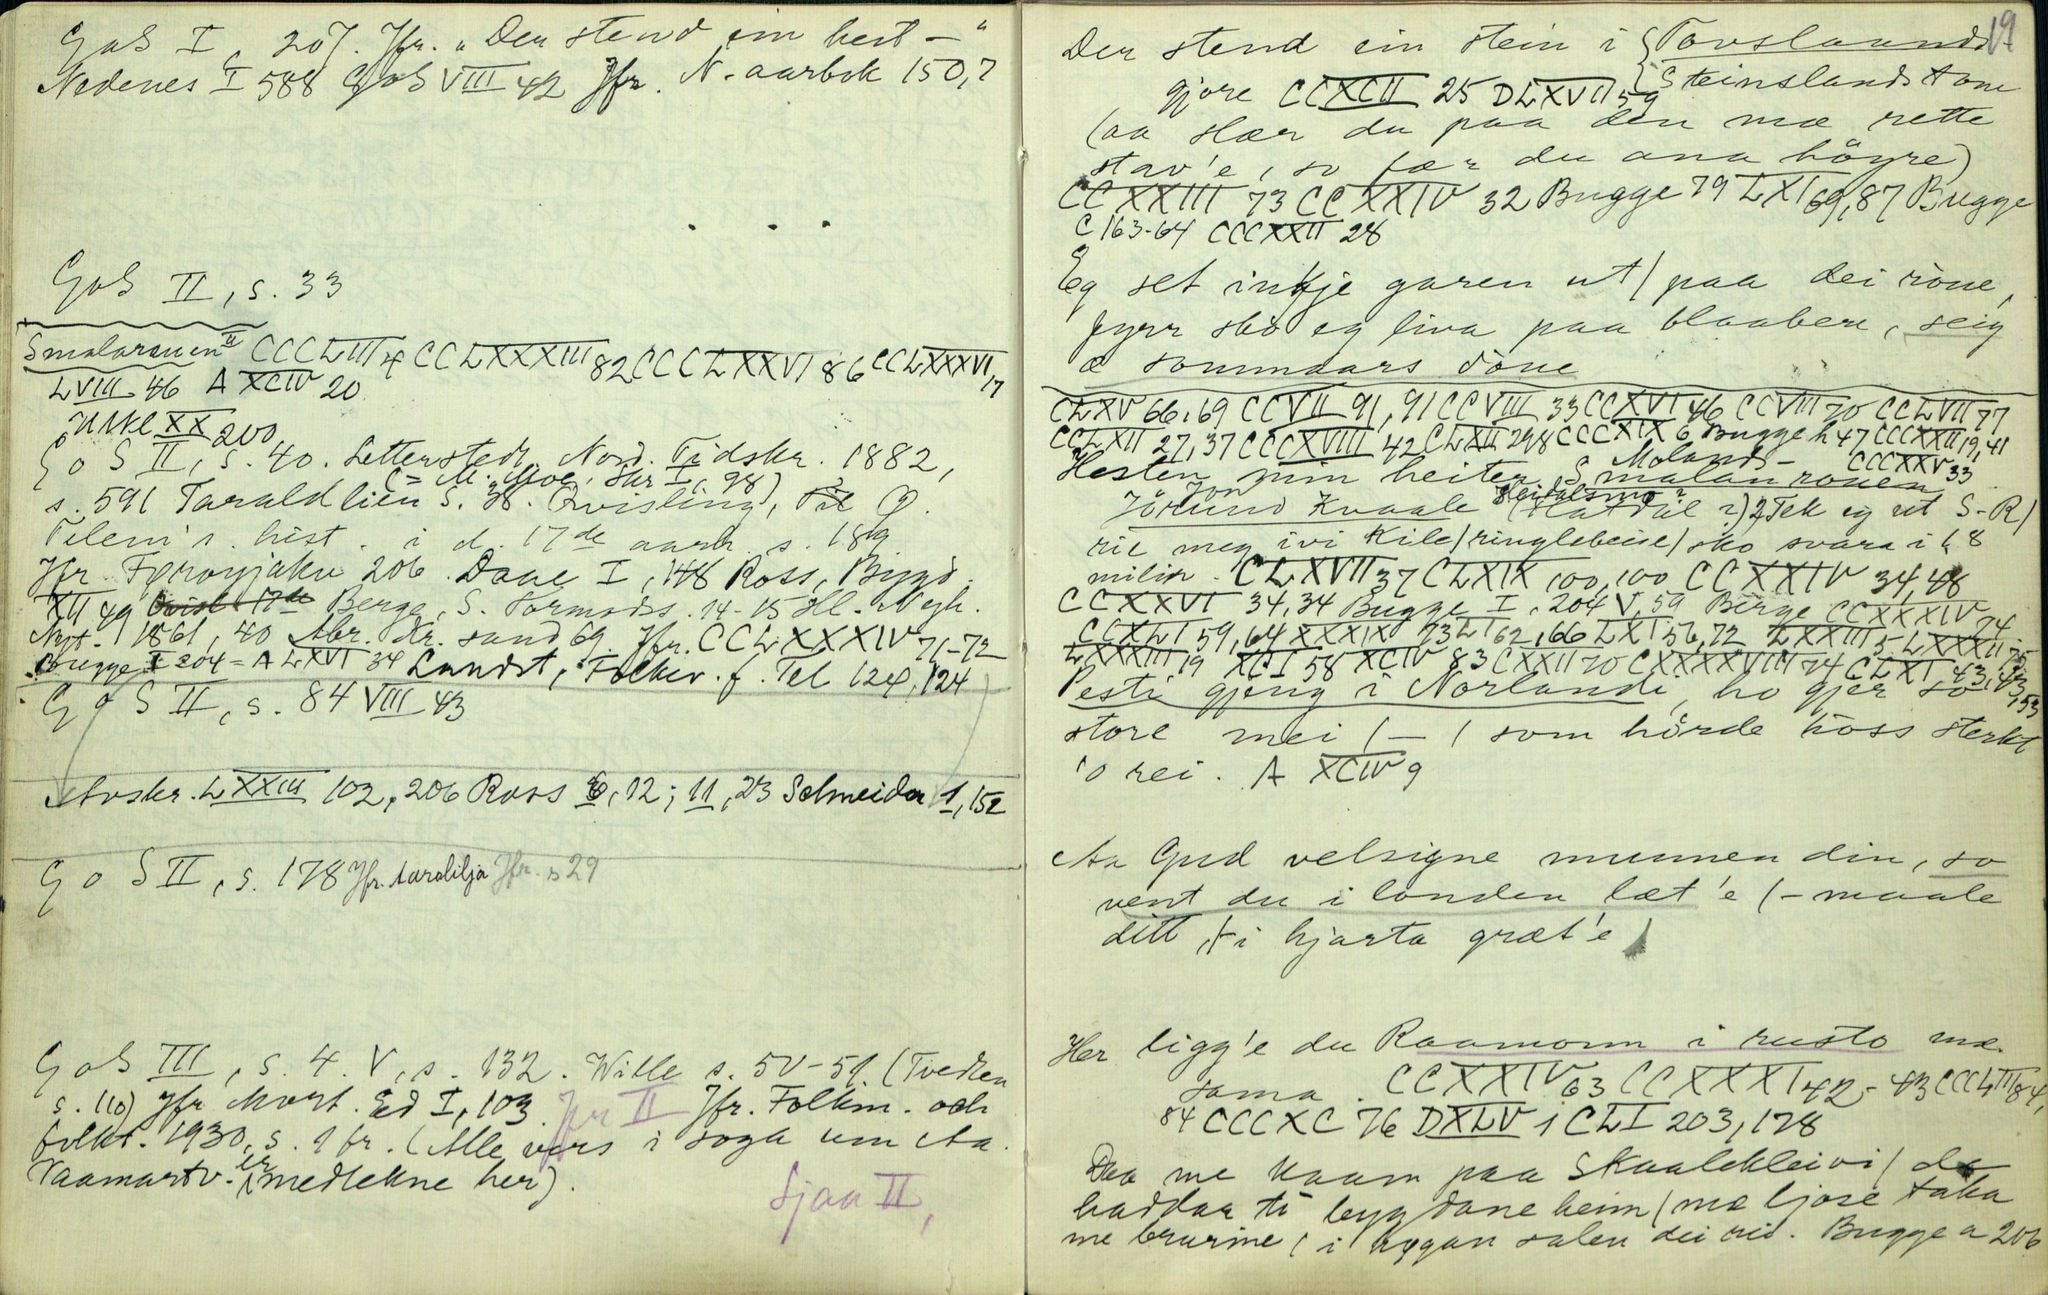 GoS I, 207. Jfr. "Der stend ein hest –"
Nedenes I 588 GoS VIII 42 Jfr. N. aarbok 150,7
GoS II, s. 33
Smalarauen II CCCLIII 4 CCLXXXIII 82 CCCLXXVI 86 CCLXXXVI 17
LVIII 46 A XCIV 20
XX 200
GoS II, s. 40. Letterstedt. Nord. Tidskr. 1882,
(= M. Moe, Skr I, 98)
s. 591 Taraldlien S. 38. Qvisling,
Telem's hist. i d. 17de aarh. s. 189
Jfr. Færoyjakv 206. Daae I, 148 Ross, Bygd.
XII 49 Berge, S. Tormods. 14-15
Nyt. 1861, 40 Abr. Kr.sand 69. Jfr. CCLXXXIV 71-72
Bugge I 204 = A LXVI 34 Lundst, Folkev. f. Tel 124, 124
GoS II, s. 84 VIII 43
Avskr. LXXIII 102, 206 Ross 6, 12; 11, 23 Schneider 1, 152
GoS II, s. 178 Jfr. Aarolilja Jfr. s 29
GoS III, s. 4. V, s. 132. Wille s. 50-51 (Tvedten
s. 110) Jfr. Mort. Ed I, 103 Jfr II Jfr. Folkm. och
folkt. 1930, s. 9 fr. (Alle vers i soga um Aa.
Vaamartv. er medtekne her).
Sjaa II,
19
Der stend ein stein i { Tovslaunds
{ Steinslandstone
gjore CCXCII 25 DLXVII 59
(aa slær du paa den mæ rette
stav'e, so fær du ana höyre)
CCXXIII 73 CCXXIV 32 Bugge 79 LXI 69, 87 Bugge
C 163-64 CCCXXII 28
Eg set inkje garen ut / paa dei röne,
fyrr sko eg liva paa blaabere, seig
æ sommars döne
CLXV 66, 69 CCVII 91, 91 CCVIII 33 CCXVI 46 CCVIII 70 CCLVII 77
CCLXII 27, 37 CCCXVIII 42 CLXII 298 CCCXIX 6 Bugge h 47 CCCXXII 19, 41
Molands- CCCXXV 33
Hesten min heiter Smalan rouen
Jon
Jörund Kvaale (Flatdal ?) 2 Tek eg ut S-R /
rie meg ivi Kile / ringlebeise / sko svara i 18
milir. CLXVII 37 CLXIX 100, 100 CCXXIV 34, 48
CCXXVI 34, 34 Bugge I, 204 V, 59 Berge CCXXXIV 74
CCXLI 59, 64 XXXIX 73 LI 62, 66 LXI 56, 72 LXXIII 5 LXXXII 75
LXXXIII 19 XCI 58 XCIV 83 CXXII 70 CXXXXVIII 74 CLXI 43, 43, 53
Pesti gjeng i Norlandi, ho gjer so
store mei / – / som hörde hoss sterkt
'o rei. A XCIV 9
Aa Gud velsigne munnen din, so
vent du i londen læt'e (– maale
ditt, / – i hjarta græt'e /
Her ligg'e du Raamorm i rusto mæ
soma. CCXXIV 63 CCXXXI 42-43 CCCLIII 84,
84 CCCXC 76 DXLV 1 CLI 203, 178
Daa me kaam paa Skaalekleivi / da
haddar ti bygdane heim / mæ ljose taka
me brurine / i högan salen dei rid. Bugge a 206